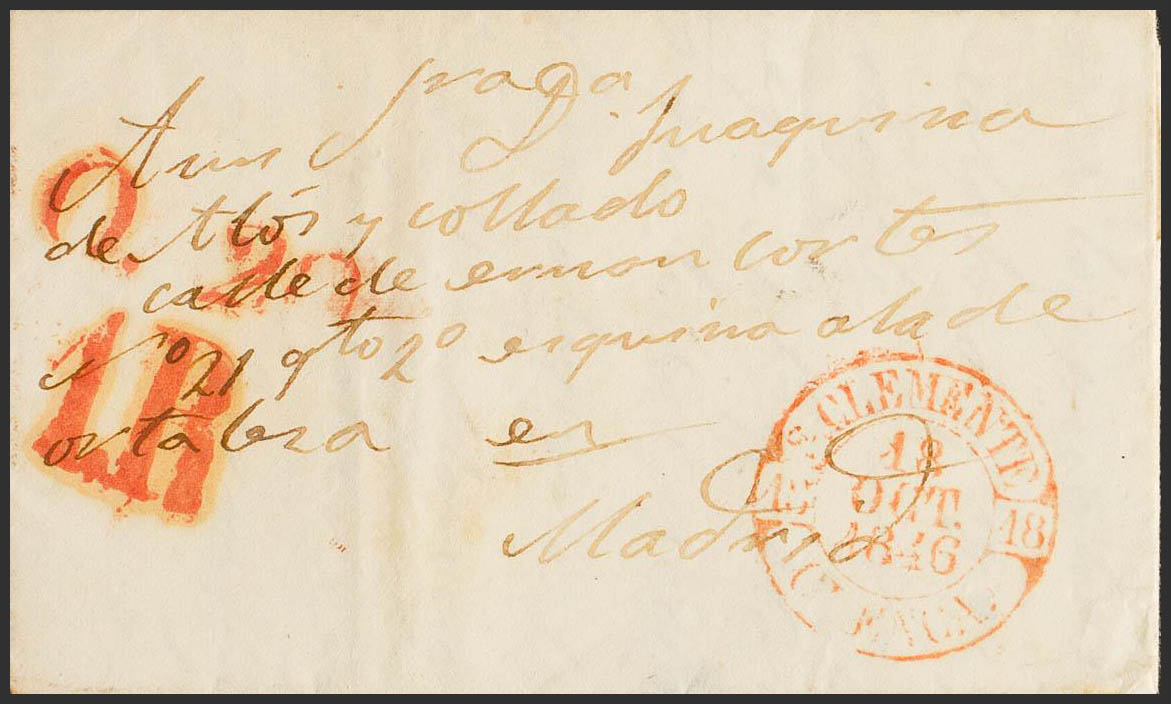 D.ª Juaquina
de Alós y collado
calle de ernan cortes
Nº 21 qto 2º esquina a la de
ortalesa en
Madrid
1R
S. CLEMENTE
18
OCT.
1846
18
CUENCA.